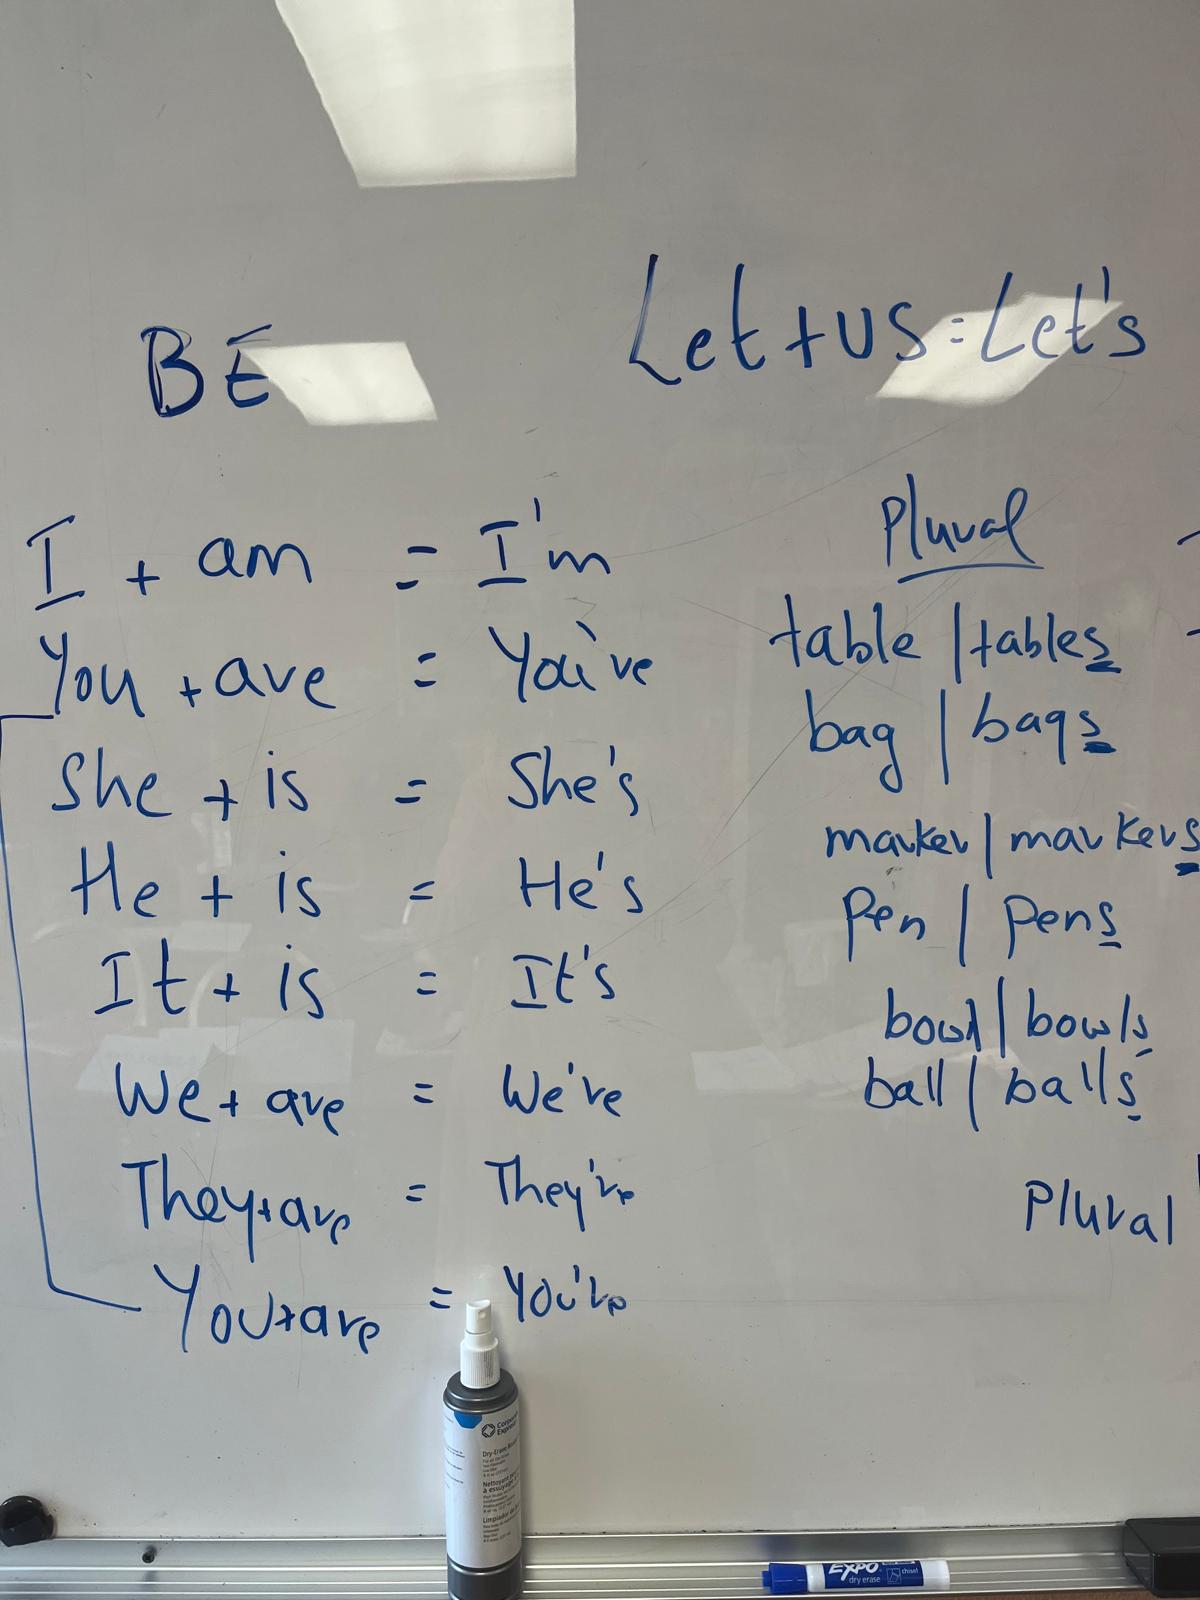 BE
Let + us = Let's
I + am = I'm
You + are = You're
She + is = She's
He + is = He's
It + is = It's
We + are = We're
They + are = They're
You + are = You're
Plural
table | tables
bag | bags
marker | markers
pen | pens
bowl | bowls
ball | balls
Plural
Dry-Erase
Nettoyant
à essuyage
Limpiador
EXPO
dry erase
chisel